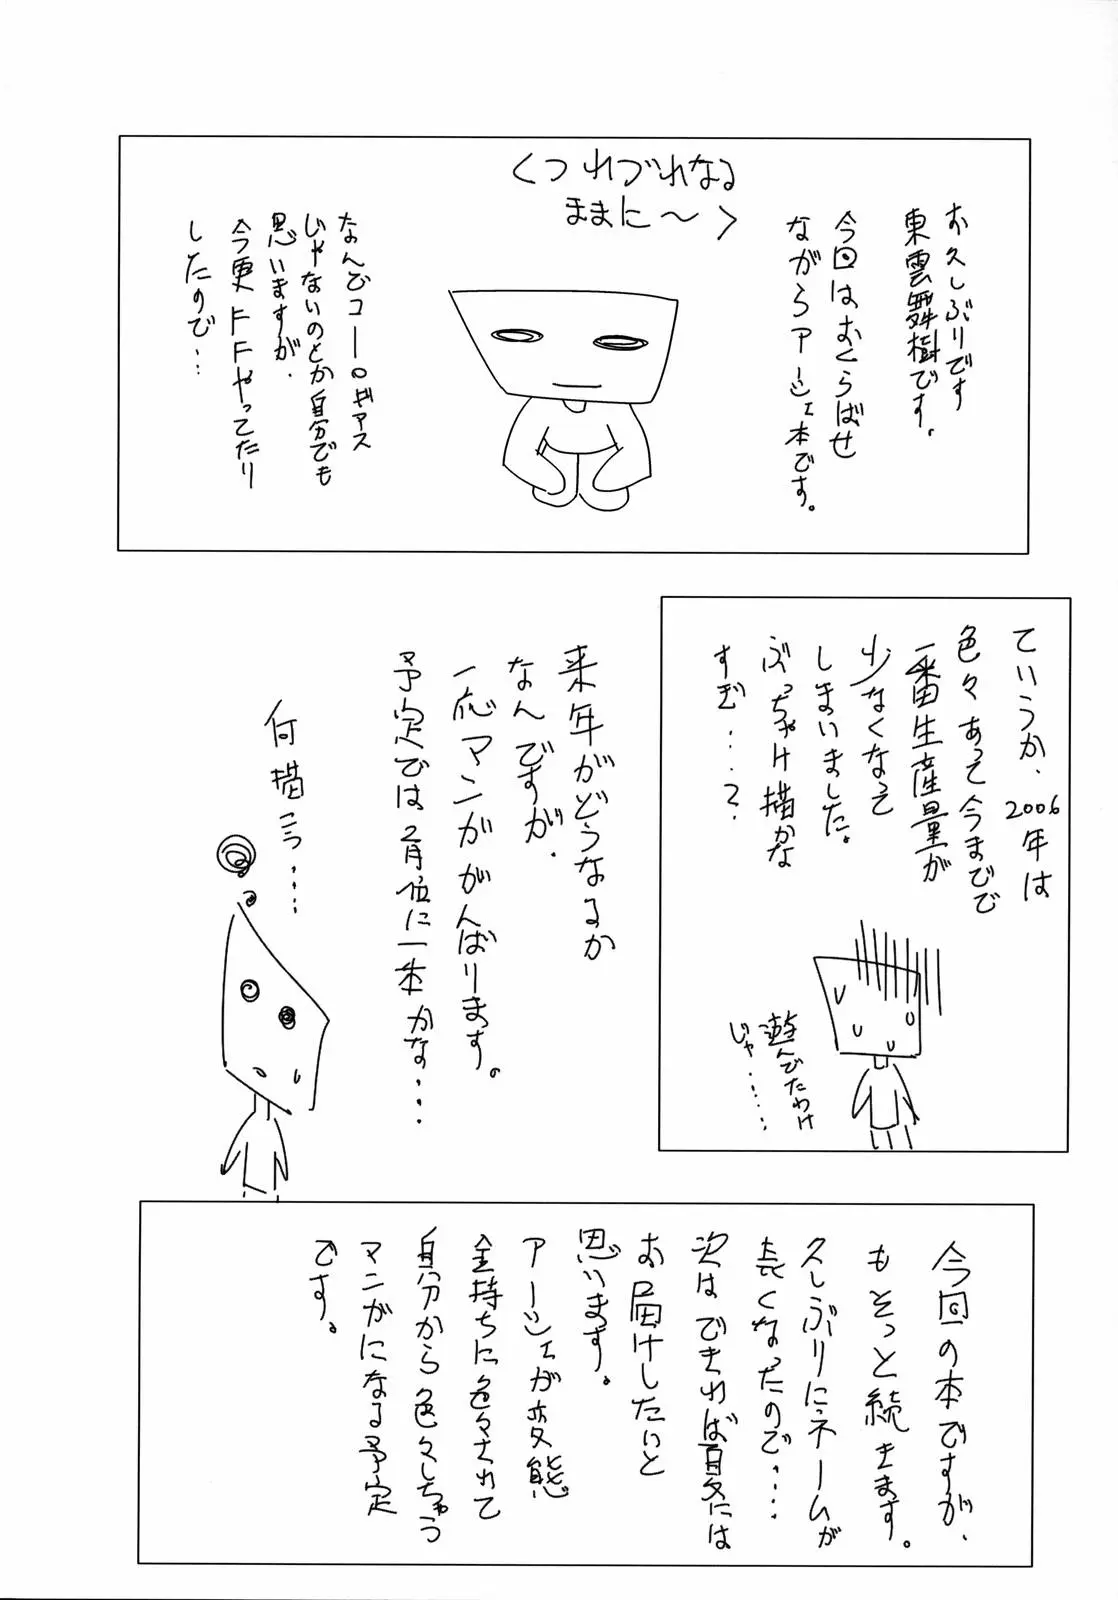 お久しぶりです
東雲舞樹です。
今回はおくらばせ
ながらアーシェ本です。
くつれづれなる
ままに〜＞
なんでコードギアス
じゃないのとか自分でも
思いますが、
今更FFやってたり
したので…
ていうか、2006年は
色々あって今までで
一番生産量が
少なくなって
しまいました。
ぶっちゃけ描かな
すぎ…？
遊んでたわけ
じゃ……
来年がどうなるか
なんですが、
一応マンガがんばります。
予定では2月位に一本かな…
何描こう…
今回の本ですが、
もそっと続きます。
久しぶりにネームが
長くなったので…
次はできれば夏には
お届けしたいと
思います。
アーシェが変態
金持ちに色々されて
自分から色々しちゃう
マンガになる予定
です。